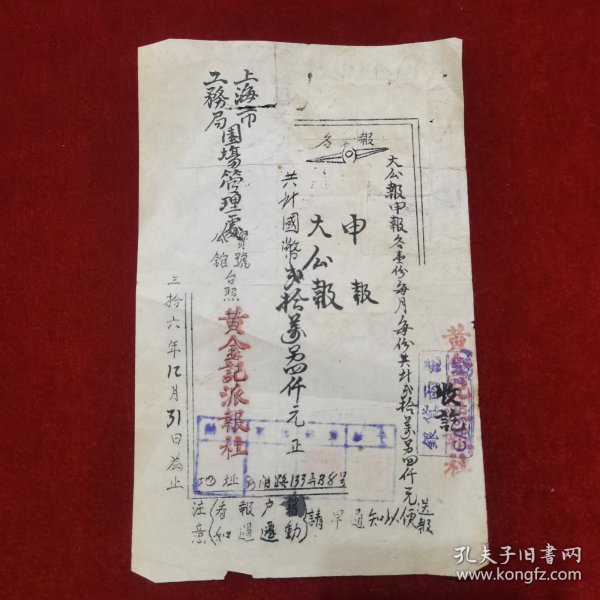 大公報申報各壹份每月每份共計弍拾萬另四仟元
送報
黃金記派報社
銀貨兩訖
收訖
報
各
申報
大公報
共計國幣弍拾萬另四仟元正
上海市
工務局園場管理處
寶號
公館
台照
黃金記派報社
三拾六年12月31日為止
地址
133弄138号
注意
看報戶
如遇遷動
請早通知以便
孔夫子旧书网
www.kongfz.com